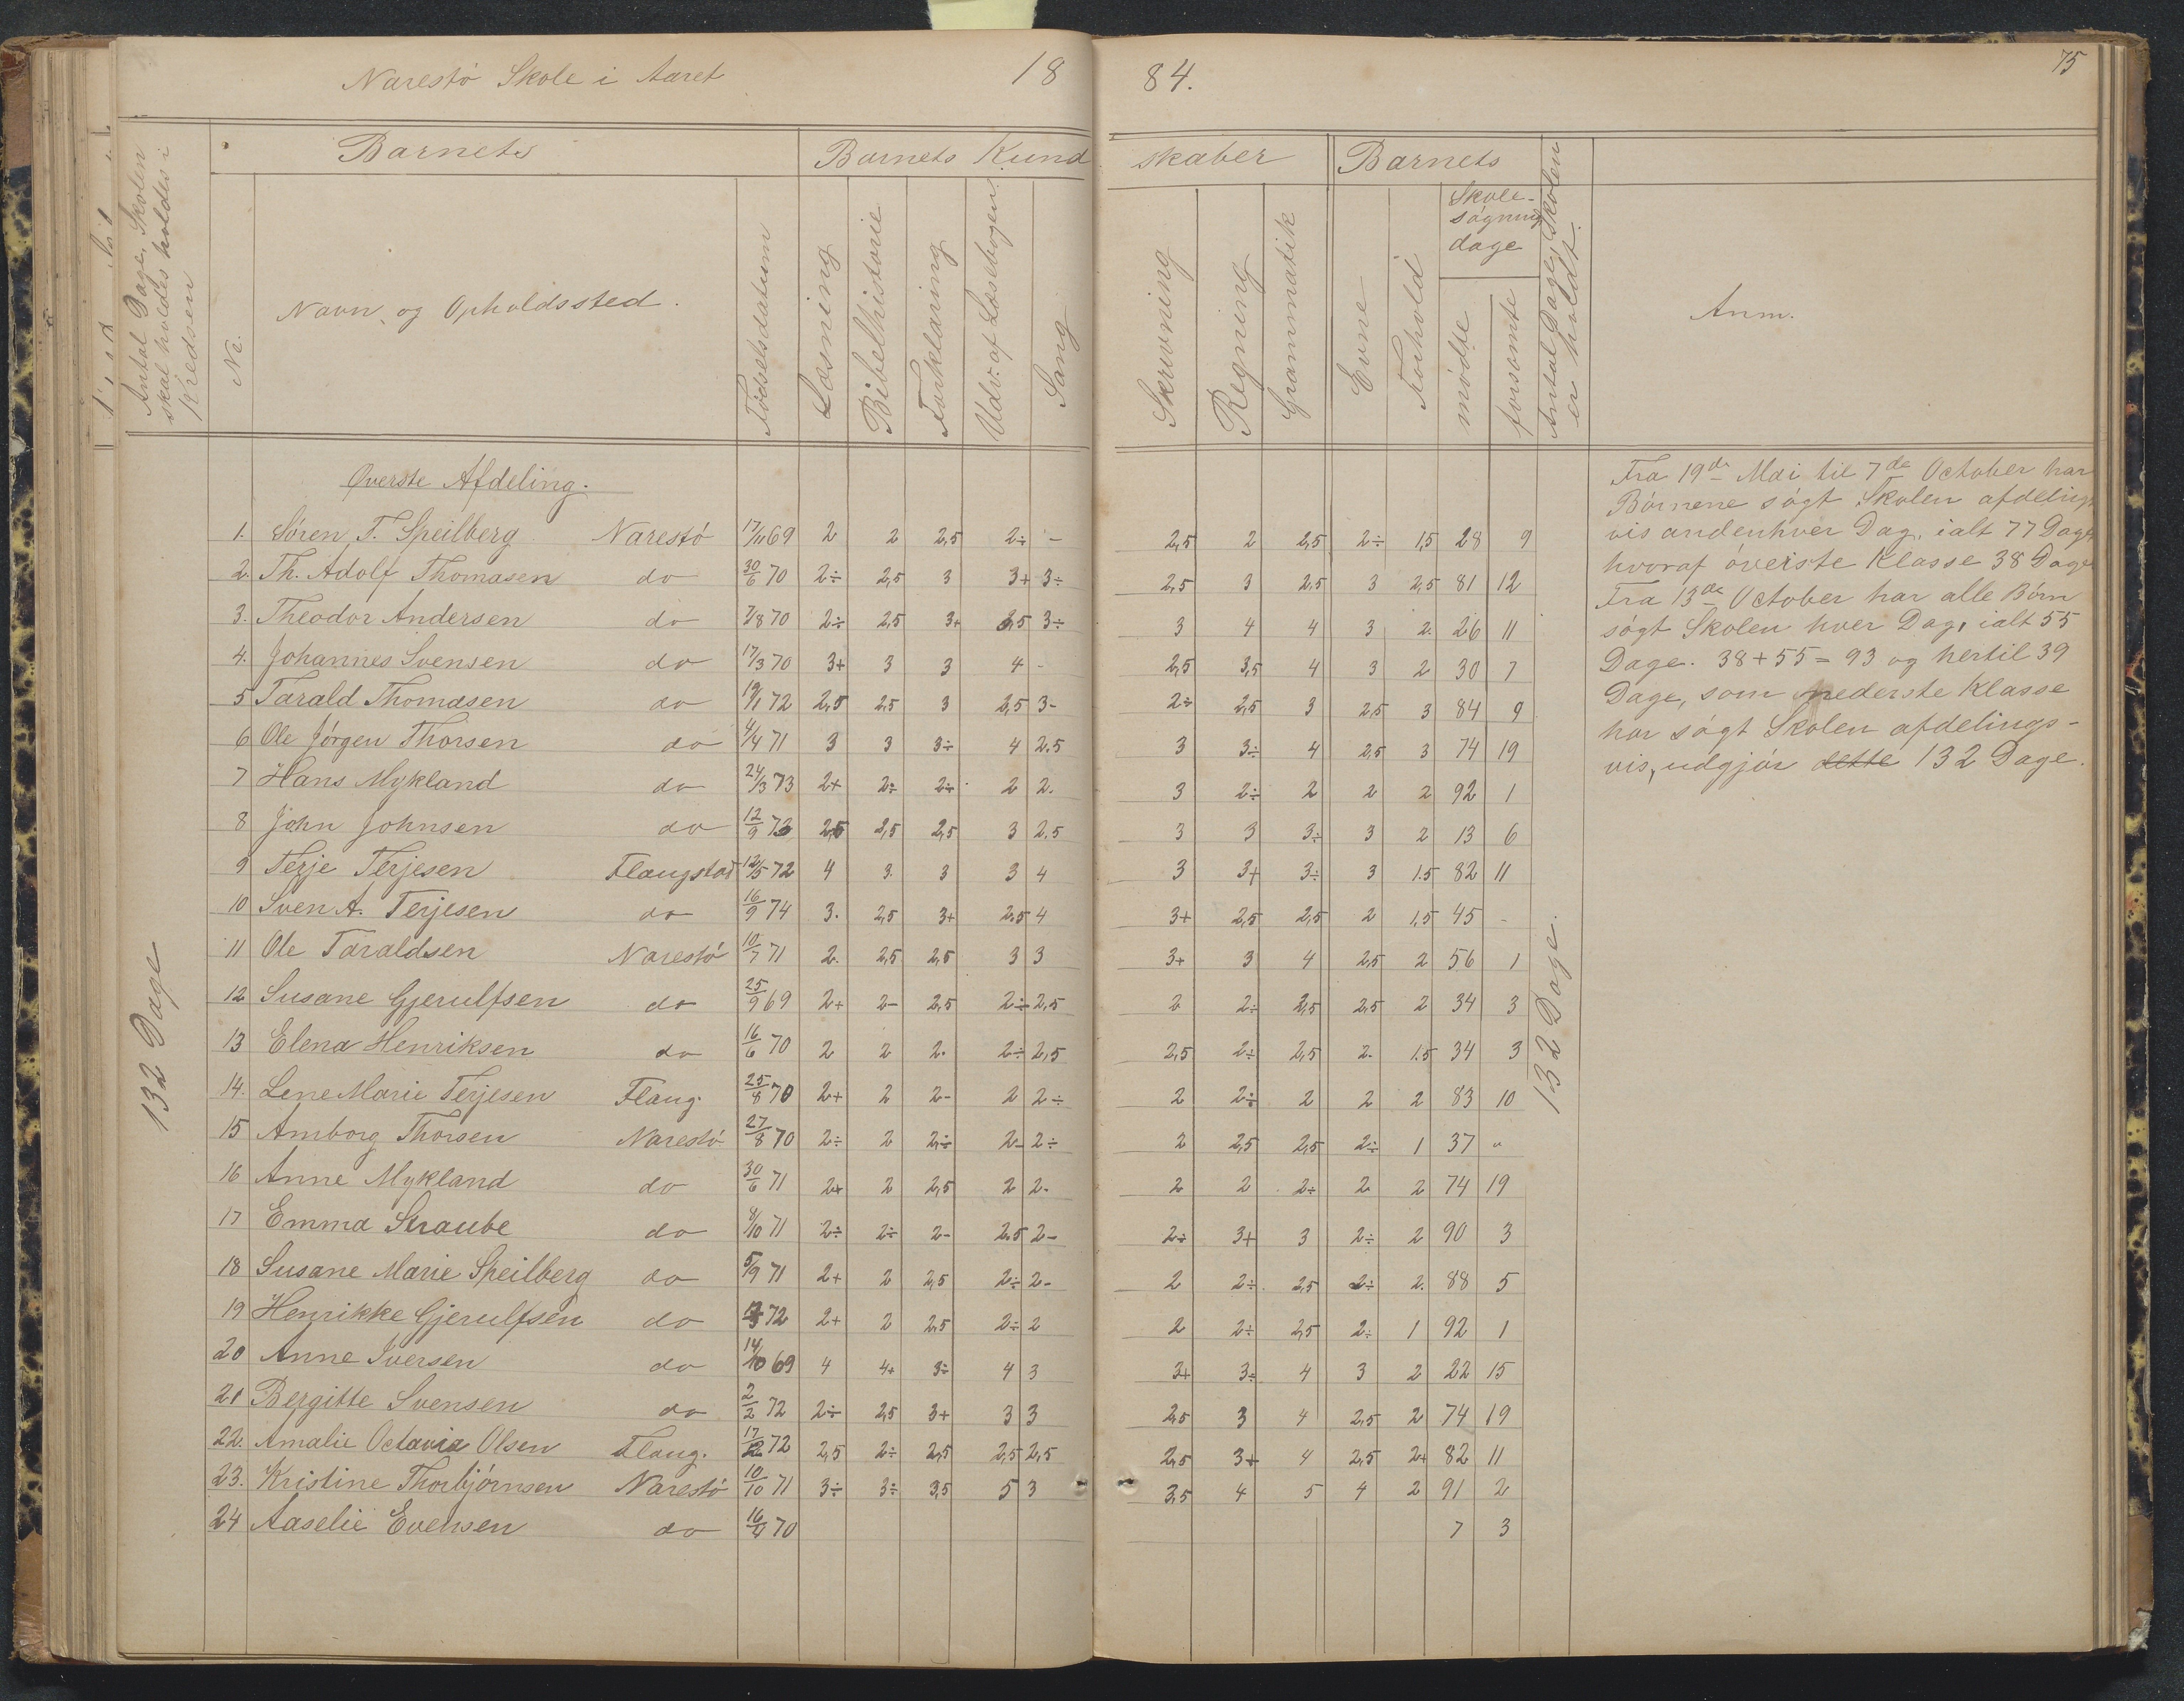 Narestö Skole i Aaret 18 84. 75
Barnets Barnets Kund skaber Barnets
Antal Dage, Skolen
skal holdes holdes i
Kredsen
No.
Navn og Opholdssted.
Fødselsdatum
Læsning
Bibelhistorie
Forklaring
Udv. af Læsebogen
Sang
Skrivning
Regning
Grammatik
Evne
Forhold
Skole-
søgnings
dage
mødte
forsömte
Antal Dage, Skolen
er holdt.
Anm.
Øverste Afdeling.
1. Søren T. Speilberg Narestö 17/11 69 2 2 2,5 2÷ - 2,5 2 2,5 2÷ 1,5 28 9
2. Th. Adolf Thomasen do 30/6 70 2÷ 2,5 3 3+ 3÷ 2,5 3 2,5 3 2,5 81 12
3. Theodor Andersen do 7/8 70 2÷ 2,5 3+ 3,5 3÷ 3 4 4 3 2. 26 11
4. Johannes Svensen do 17/3 70 3+ 3 3 4 - 2,5 3,5 4 3 2 30 7
5 Tarald Thomasen do 19/1 72 2,5 2,5 3 2,5 3- 2÷ 2,5 3 2,5 3 84 9
6 Ole Jörgen Thorsen do 4/4 71 3 3 3÷ 4 2.5 3 3÷ 4 2,5 3 74 19
7 Hans Mykland do 24/3 73 2+ 2÷ 2÷ 2 2. 3 2÷ 2 2 2 92 1
8 John Johnsen do 12/9 73 2,5 2,5 2,5 3 2.5 3 3 3÷ 3 2 13 6
9 Terje Terjesen Flaugstad 12/5 72 4 3. 3 3 4 3 3+ 3÷ 3 1.5 82 11
10 Sven A. Terjesen do 16/9 74 3. 2,5 3+ 2.5 4 3+ 2,5 2,5 2 1,5 45 -
11 Ole Taraldsen Narestö 10/7 71 2. 2,5 2,5 3 3 3+ 3 4 2,5 2 56 1
12 Susane Gjerulfsen do 25/9 69 2+ 2- 2,5 2÷ 2,5 2 2÷ 2,5 2,5 2 34 3
13 Elena Henriksen do 16/6 70 2 2 2. 2÷ 2,5 2,5 2÷ 2,5 2. 1.5 34 3
14. Lene Marie Terjesen Flaug. 25/8 70 2+ 2 2- 2 2÷ 2 2÷ 2 2 2 83 10
15 Amborg Thorsen Narestö 27/8 70 2÷ 2 2÷ 2- 2÷ 2 2,5 2,5 2÷ 1 37 "
16 Anne Mykland do 30/6 71 2+ 2 2,5 2 2. 2 2 2÷ 2 2 74 19
17 Emma Straube do 8/10 71 2÷ 2÷ 2- 2.5 2- 2÷ 3+ 3 2÷ 2 90 3
18 Susane Marie Speilberg do 5/9 71 2+ 2 2,5 2÷ 2- 2 2÷ 2,5 2÷ 2. 88 5
19 Henrikke Gjerulfsen do 72 2+ 2 2,5 2÷ 2 2 2÷ 2,5 2÷ 1 92 1
20 Anne Iversen do 14/10 69 4 4+ 3÷ 4 3 3+ 3÷ 4 3 2 22 15
21 Bergitte Svensen do 2/2 72 2÷ 2,5 3+ 3 3 2,5 3 4 2,5 2 74 19
22. Amalie Octavia Olsen Flaug. 17/12 72 2,5 2÷ 2,5 2,5 2,5 2,5 3+ 4 2,5 2+ 82 11
23. Kristine Thorbjörnsen Narestö 10/10 71 3÷ 3÷ 3,5 5 3 3,5 4 5 4 2 91 2
24 Aaselie Evensen do 16/4 70 7 3
132 Dage
132 Dage.
Fra 19de Mai til 7de October har
Börnene sögt Skolen afdelings
vis andenhver Dag, ialt 77 Dage
hvoraf överste Klasse 38 Dage
Fra 13de October har alle Börn
sögt Skolen hver Dag, ialt 55
Dage. 38 + 55 = 93 og hertil 39
Dage, som nederste Klasse
har sögt Skolen afdelings-
vis, udgjör dette 132 Dage.